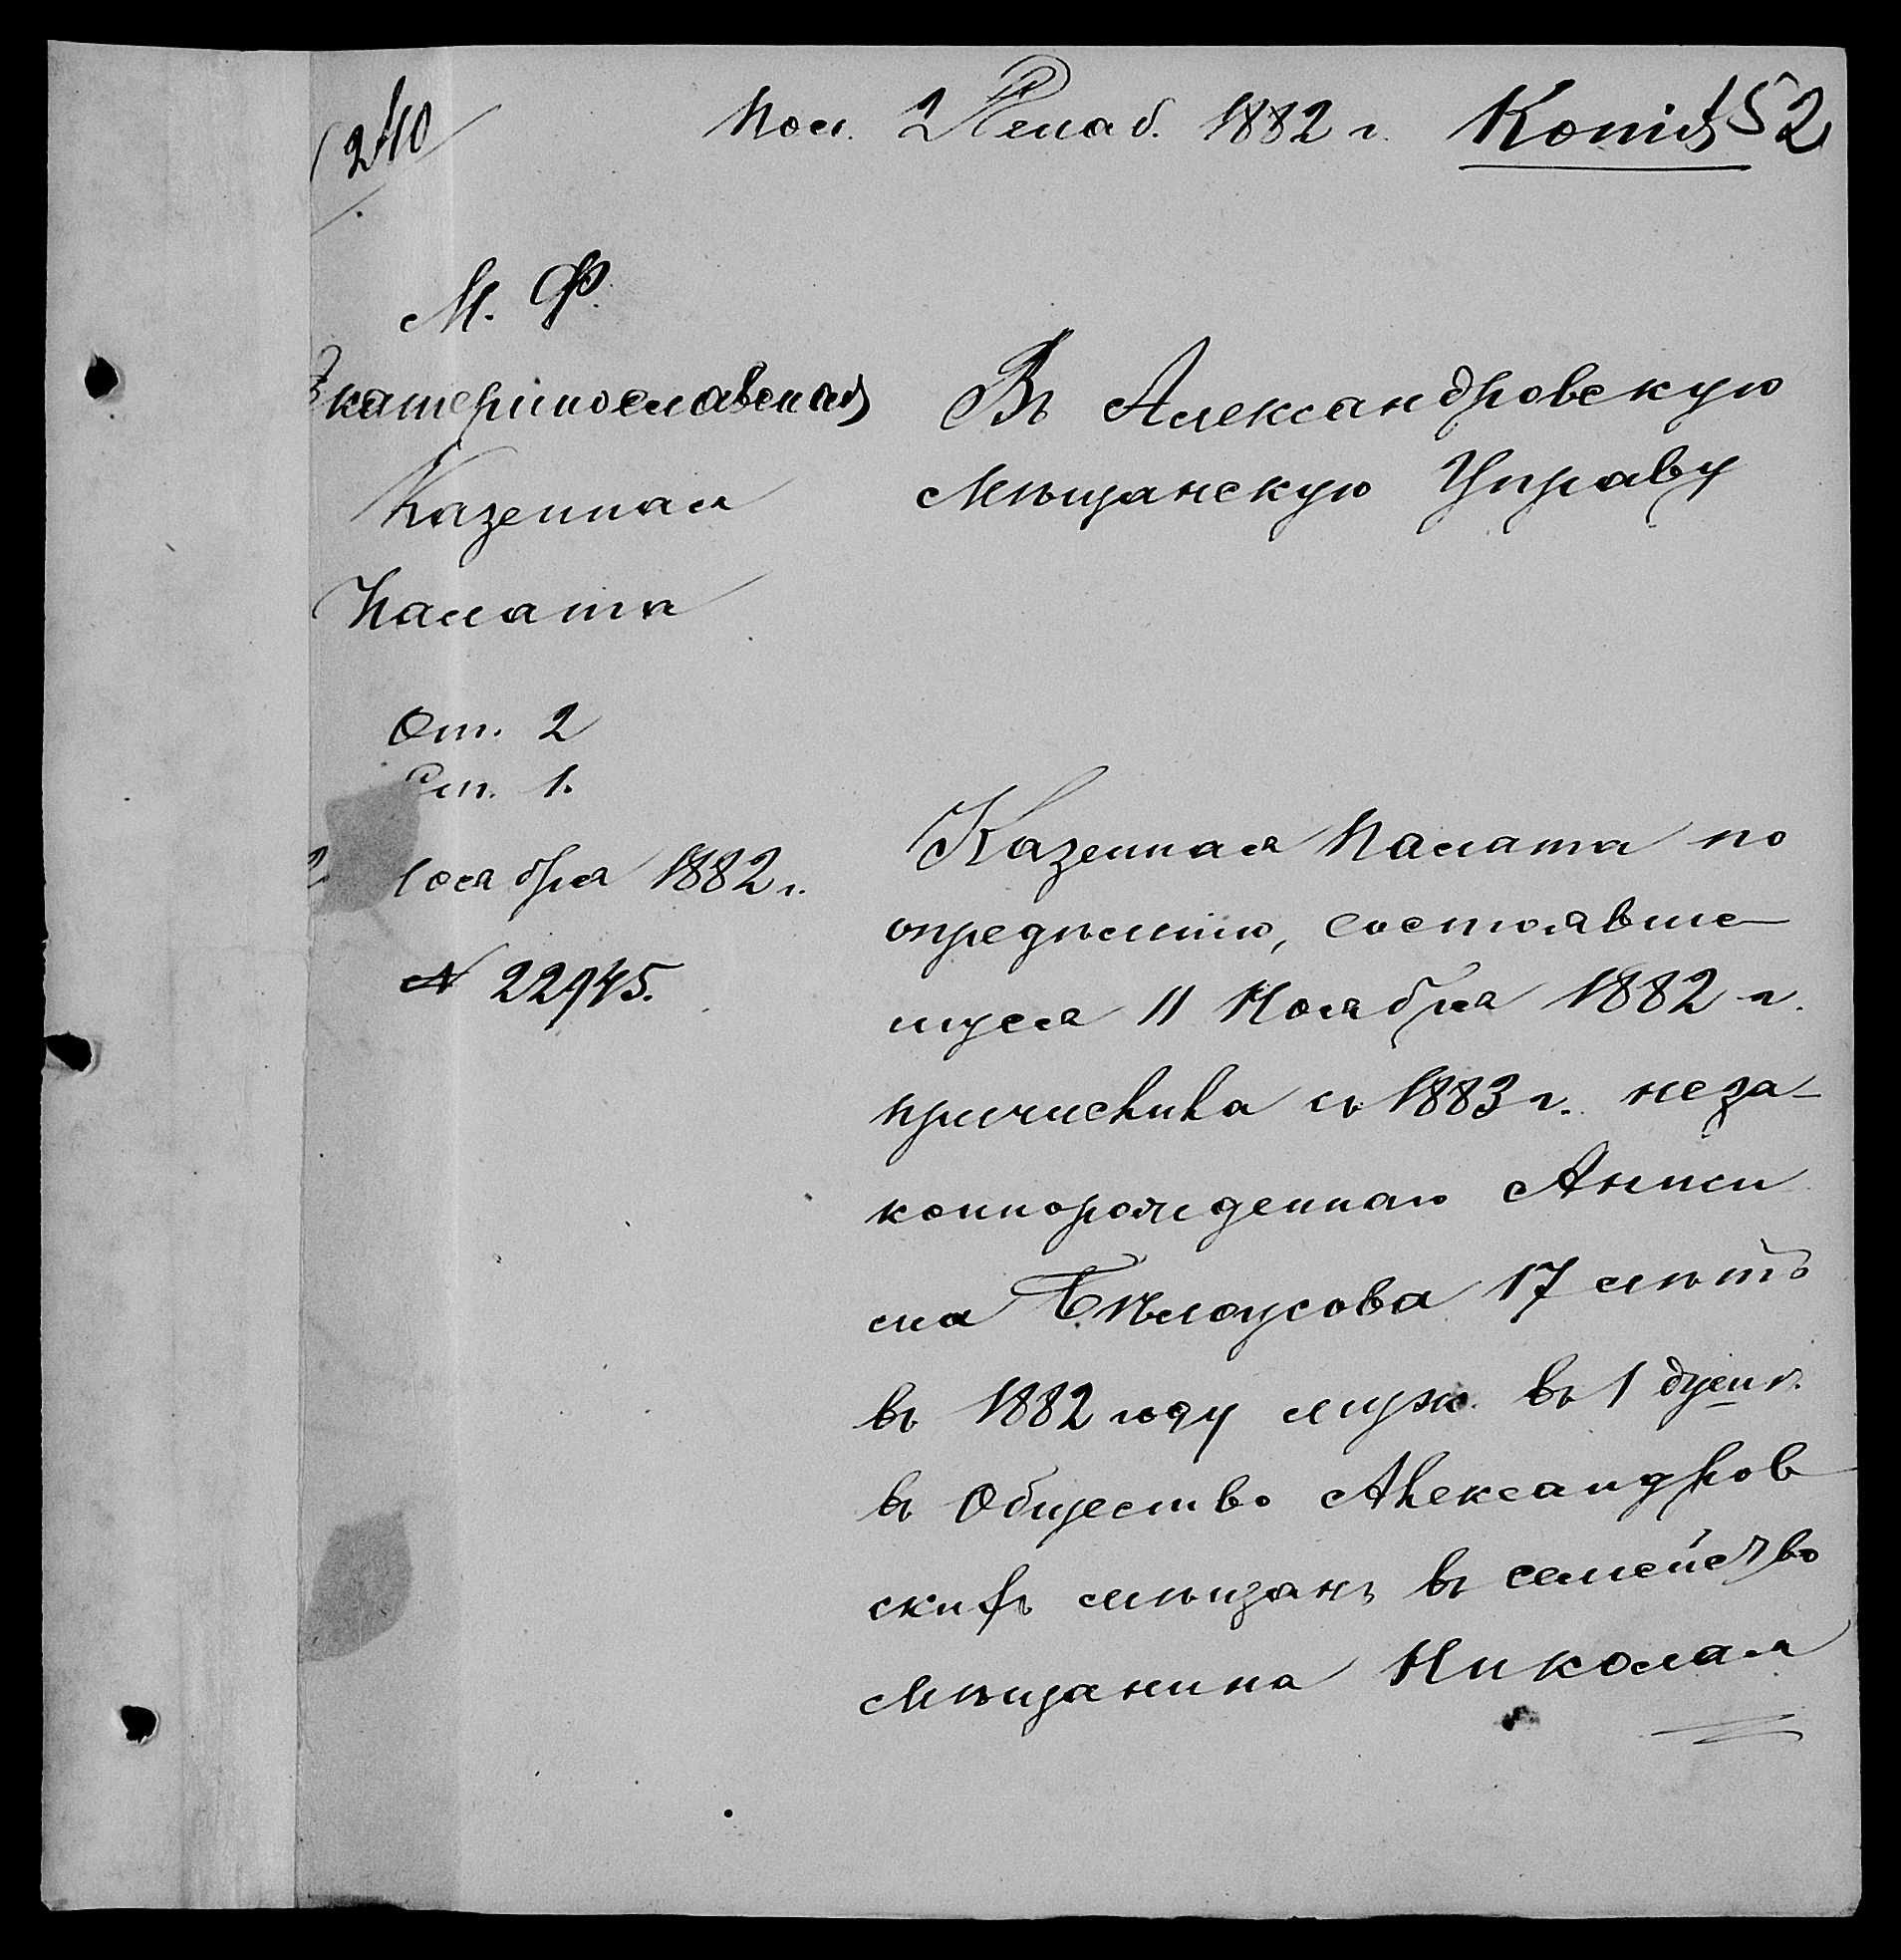 240
Пол. 2 Декаб. 1882 г. Копія 52
М. Ф.
Екатеринославская
Казенная
Палата
От. 2
Ст. 1.
Ноября 1882 г.
№ 22945.
Въ Александровскую
Мѣщанскую Управу
Казенная Палата по
опредѣленію, состоявше-
муся 11 Ноября 1882 г.
причислила съ 1883 г. неза-
коннорожденнаго Аниси
ма Бѣлоусова 17 лѣтъ
въ 1882 году муж. въ 1 душѣ.
въ Общество Александров
скихъ мѣщанъ въ семейство
Мѣщанина Николая